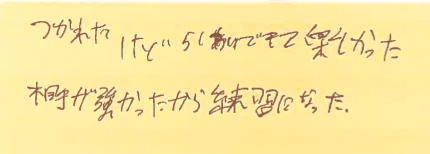 つかれたけどらいあいできて楽しかった
相手が強かったから練習になった.